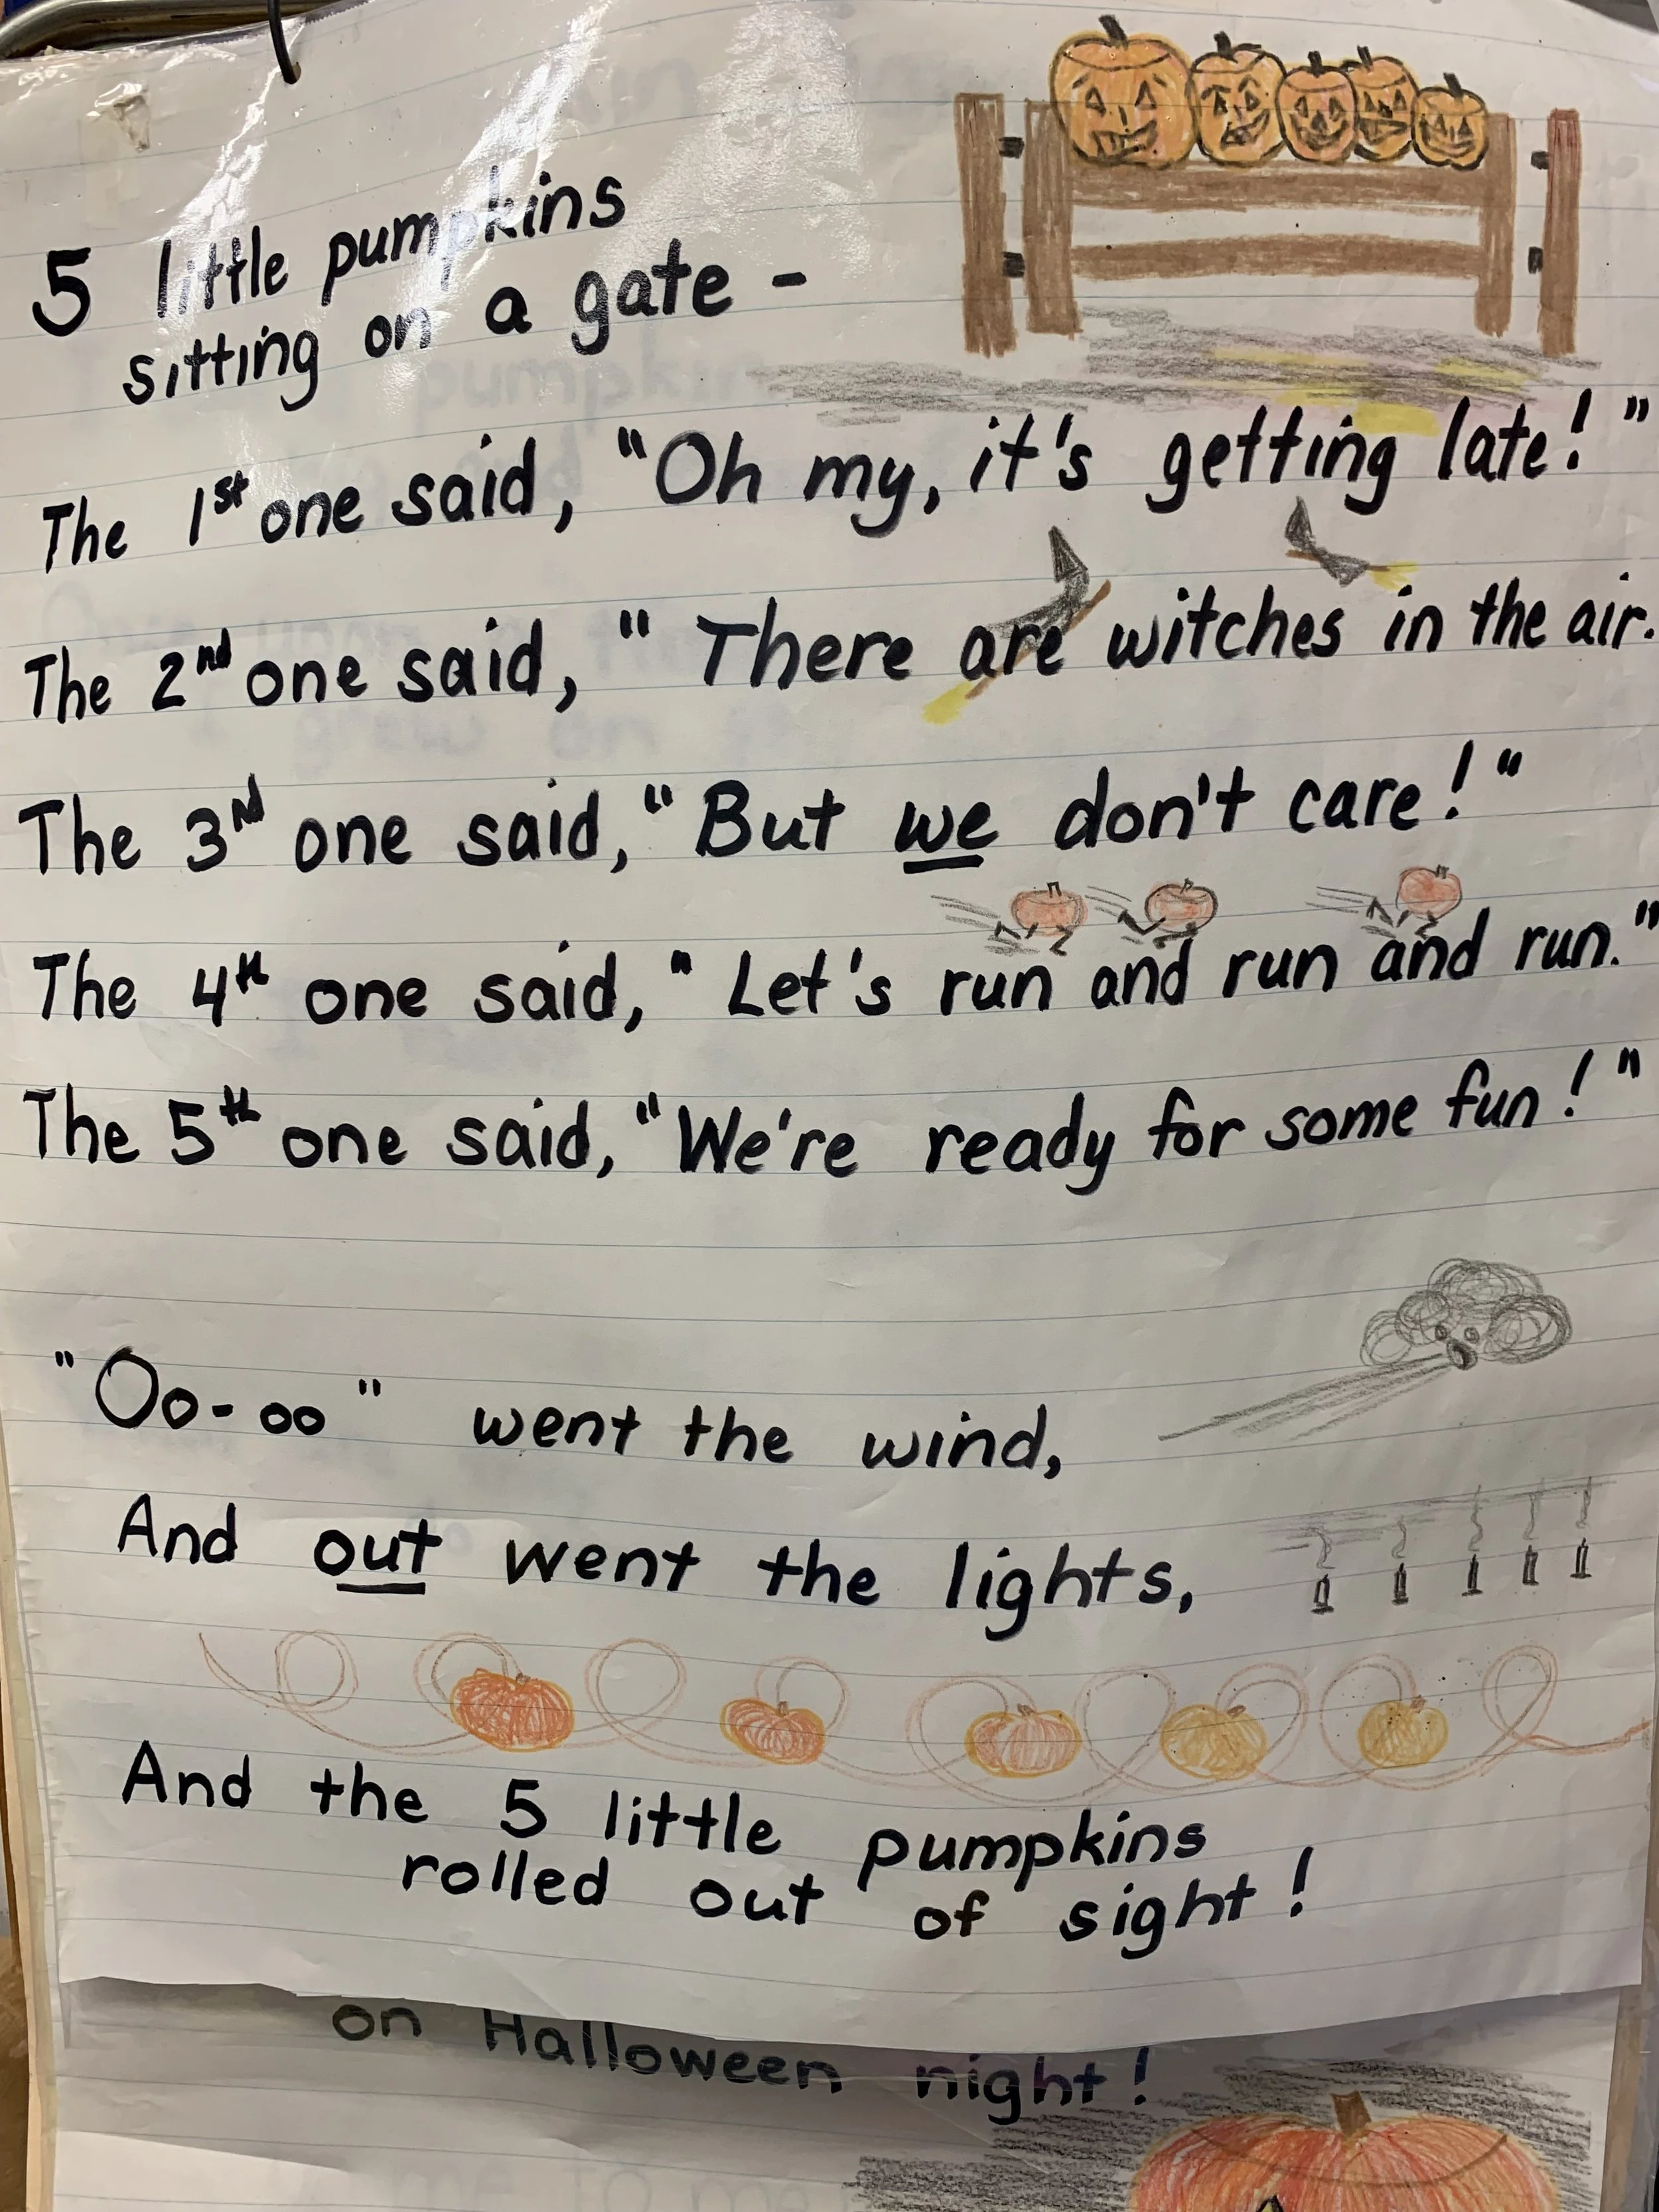 5 little pumpkins
sitting on a gate -
The 1st one said, "Oh my, it's getting late!"
The 2nd one said, "There are witches in the air.
The 3rd one said, "But we don't care!"
The 4th one said, "Let's run and run and run."
The 5th one said, "We're ready for some fun!"
"Oo-oo" went the wind,
And out went the lights,
And the 5 little pumpkins
rolled out of sight!
on Halloween night!